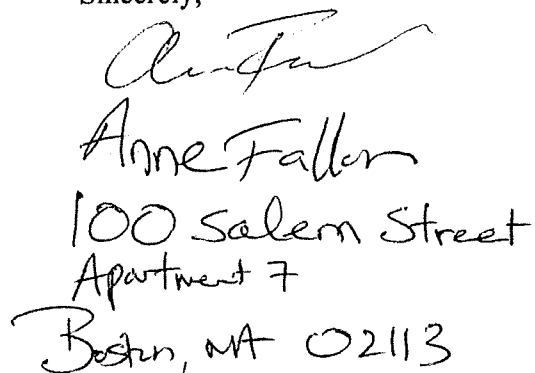 Sincerely,
Anne Fallon
100 Salem Street
Apartment 7
Boston, MA 02113